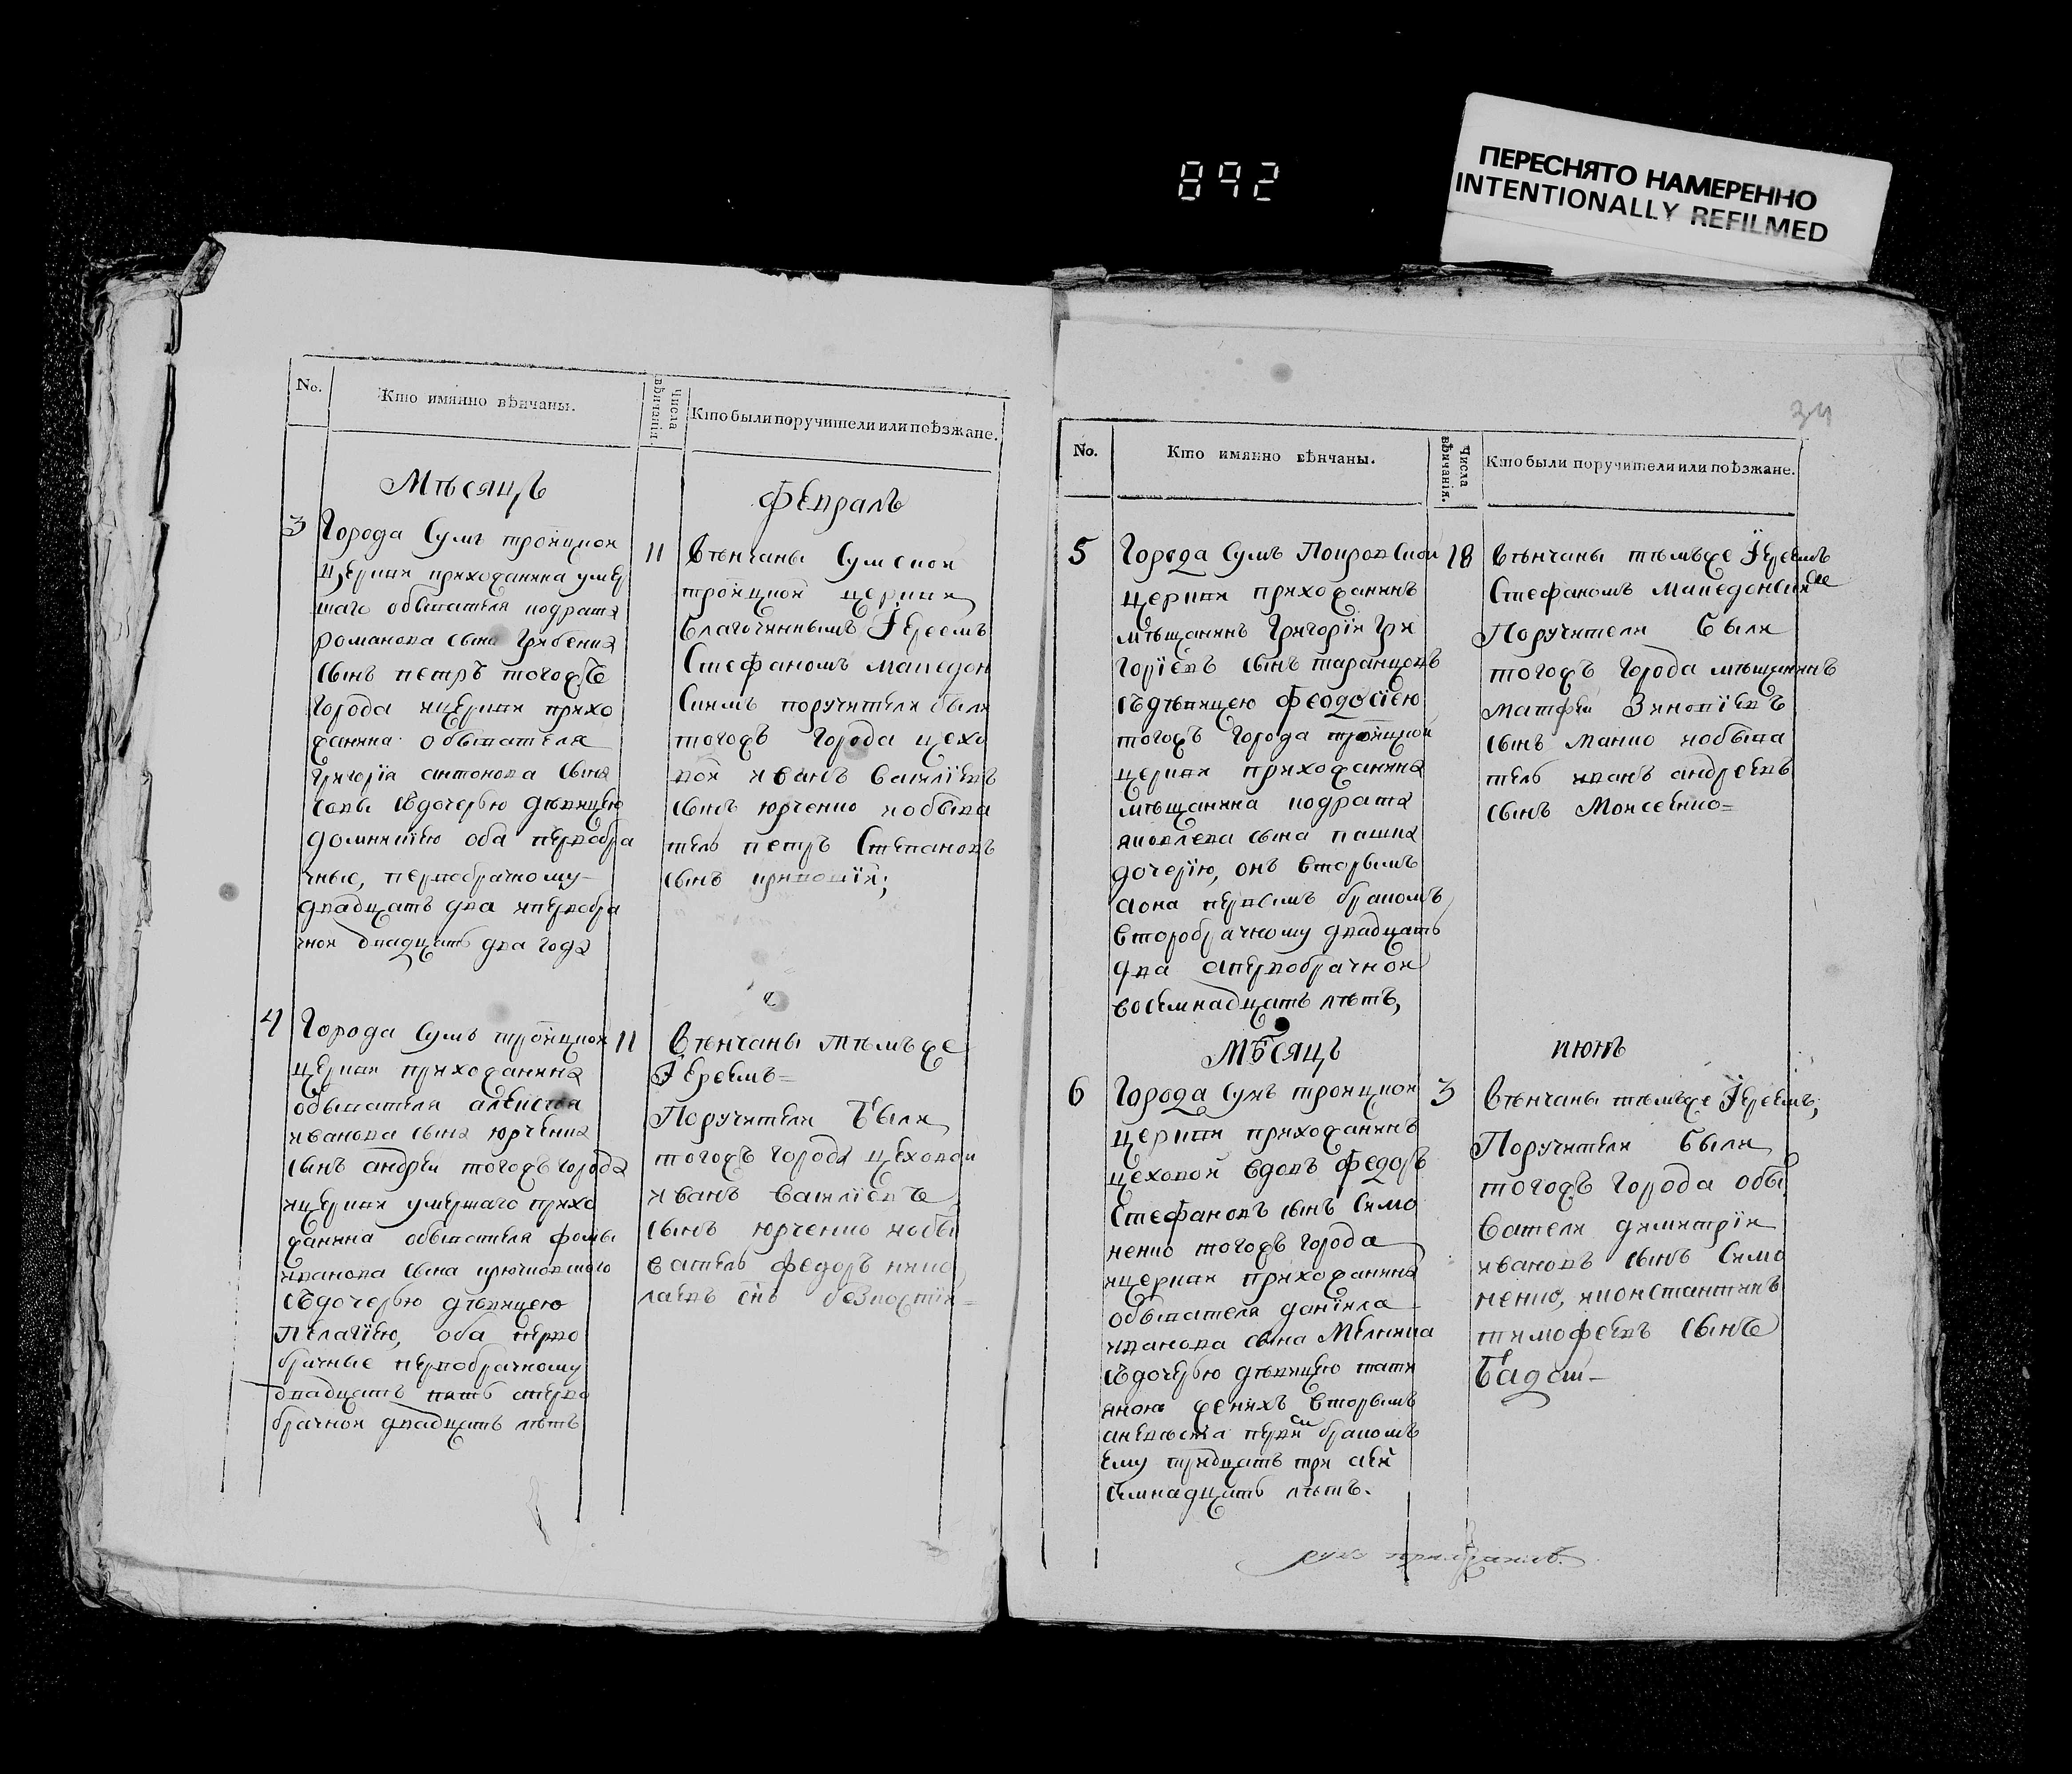 892
ПЕРЕСНЯТО НАМЕРЕННО
INTENTIONALLY REFILMED
No.
Кто имянно вѣнчаны.
Числа вѣнчанія.
Кто были поручители или поѣзжане.
Мѣсяцъ
Февралъ
3
Города Сумъ троицкой
церкви прихожанина умер
шаго обывателя кодрата
романова сына Грибенка
сынъ петръ тогожъ
города ицеркви прихо
жанина обывателя
григорія антонова сына
съдочерью дѣвицею
домникіею оба первобра
чные, первобрачному
двадцать два иперво­бра
чной двадцать два года
11
Вѣнчаны Сумской
троицкой церкви
Благочиннымъ Іереемъ
Стефаномъ македон
скимъ поручители были
тогожъ города цехо
вой иванъ василіевъ
сынъ юрченко иобыва
тель петръ Степановъ
сынъ
4
Города Сумъ троицкой
церкви прихожанина
обывателя алексея
иванова сына юрченка
сынъ андрей тогожъ города
ицеркви умершаго прихо
жанина обывателя фомы
иванова сына
съдочерью дѣвицею
Пелагіею, оба перво
брачные первобрачному
двадцать пять аперво
брачной двадцать лѣтъ
11
Вѣнчаны тѣмъже
Іереемъ=
Поручители были
тогожъ города цеховой
иванъ василіевъ
сынъ юрченко иобы
ватель федоръ нико
лаевъ снъ
34
No.
Кто имянно вѣнчаны.
Числа вѣнчанія.
Кто были поручители или поѣзжане.
5
Города Сумъ Покровской
церкви прихожанинъ
мѣщанинъ Григорій Гри
горіевъ сынъ таранцовъ
съдѣвицею феодосіею
тогожъ города троицкой
церкви прихожанина
мѣщанина кодрата
яковлева сына пашка
дочерію, онъ вторымъ
аона первымъ бракомъ,
второбрачному двадцать
два апервобрачной
восемнадцать лѣтъ,
18
вѣнчаны тѣмъже Іереемъ
Стефаномъ македонским
Поручители были
тогожъ города мѣщанинъ
матфей Зиновіевъ
сынъ Манко иобыва
тель иванъ андреевъ
сынъ Моисеенко=
Мѣсяцъ
июнь
6
Города Сумъ троицкой
церкви прихожанинъ
цеховой вдовъ федоръ
Стефановъ сынъ Симо
ненко тогожъ города
ицеркви прихожанина
обывателя даніила
иванова сына Мелника
съдочерью дѣвицею тати
яною женихъ вторымъ
аневеста первым бракомъ
ему тридцать три аей
семнадцать лѣтъ.
3
вѣнчаны тѣмъже Іереемъ;
Поручители были
тогожъ города обы
ватели димитрій
ивановъ сынъ Симо
ненко, иконстантинъ
тимофеевъ сынъ